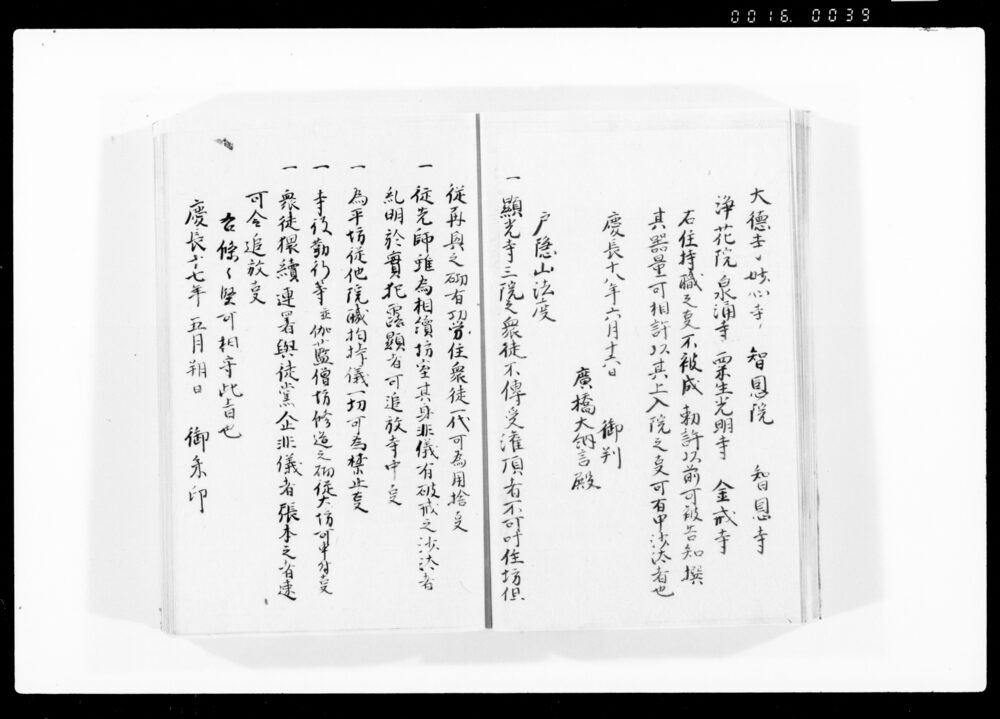 0016. 0039
大徳寺、妙心寺、智恩院 智恩寺
浄花院 泉涌寺 粟生光明寺 金戒寺
右住持職之事不被成 勅許以前可被告知撰
其器量可相許以其上入院之事可有申沙汰者也
慶長十八年六月十六日 御判
廣橋大納言殿
戸隠山法度
一 顯光寺三院之衆徒不傳受潅頂者不可叶住坊但
従再興之砌有功労住衆徒一代可為用捨事
一 従先師雖為相續坊室其身非儀有破戒之沙汰者
糺明於實犯露顯者可追放寺中事
一 為平坊従他院職拘持儀一切可為禁止事
一 寺役勤行等並伽藍僧坊修造之砌従大坊可申付事
一 衆徒猥續連署與徒黨企非儀者張本之者速
可令追放事
右條々堅可相守此旨也
慶長十七年五月朔日 御朱印